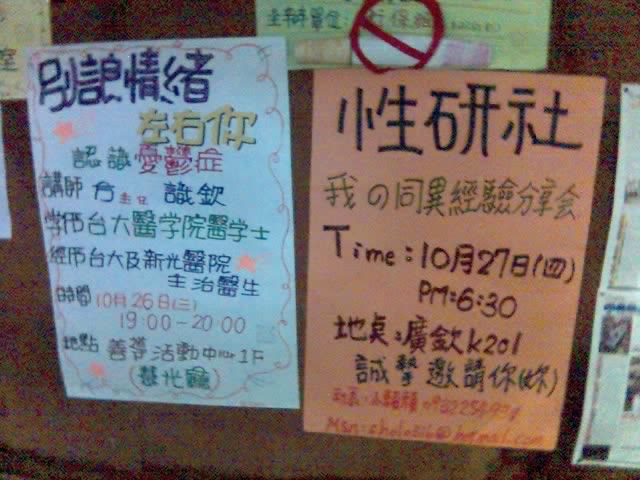 主辦單位:
別讓情緒
左右你
認識憂鬱症
講師 識欽
学歷台大醫学院醫学士
經歷台大及新光醫院
主治醫生
時間 10月26日(三)
19:00-20:00
地點 善導活動中心1F
(慧光廳)
性研社
我の同異經驗分享会
Time:10月27日(四)
PM:6:30
地点:廣欽k201
誠摯邀請你(妳)